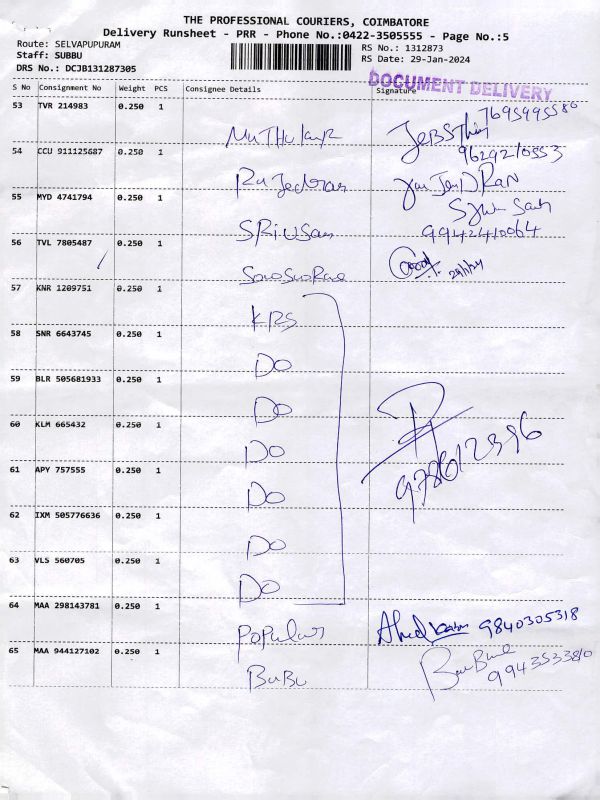 THE PROFESSIONAL COURIERS, COIMBATORE
Delivery Runsheet - PRR - Phone No.:0422-3505555 - Page No.:5
Route: SELVAPUPURAM
RS No.: 1312873
Staff: SUBBU
RS Date: 29-Jan-2024
DRS No.: DCJB131287305
DOCUMENT DELIVERY
S No Consignment No Weight PCS Consignee Details Signature
53 TVR 214983 0.250 1
7695995580
54 CCU 911125687 0.250 1
9629210553
55 MYD 4741794 0.250 1
SRi
9942410064
56 TVL 7805487 0.250 1
57 KNR 1209751 0.250 1
KRS
58 SNR 6643745 0.250 1
DO
59 BLR 505681933 0.250 1
DO
60 KLM 665432 0.250 1
DO
61 APY 757555 0.250 1
DO
62 IXM 505776636 0.250 1
DO
63 VLS 560705 0.250 1
DO
64 MAA 298143781 0.250 1
Popular 9840305318
65 MAA 944127102 0.250 1
BuBu